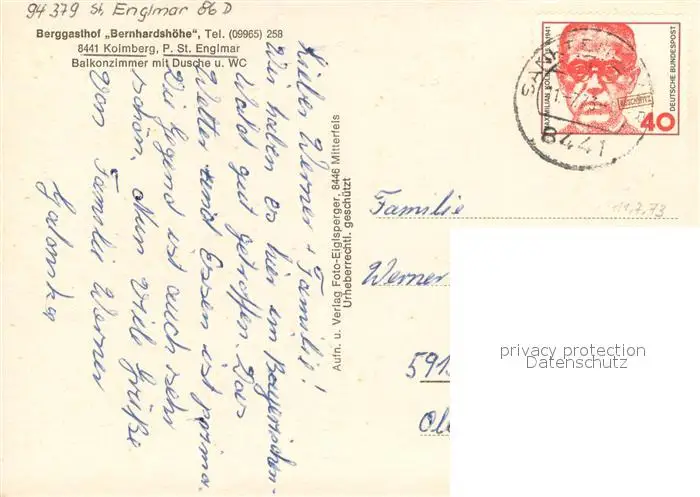 94 379 St. Englmar 86 D
Berggasthof „Bernhardshöhe“, Tel. (09965) 258
8441 Kolmberg, P. St. Englmar
Balkonzimmer mit Dusche u. WC
Lieber Werner + Familie!
Wir haben es hier im Bayerischen-
Wald gut getroffen. Das
Wetter und Essen ist prima.
Die Gegend ist auch sehr
schön. Nun viele Grüße
von Familie Werner
Aufn. u. Verlag Foto-Eiglsperger, 8446 Mitterfels
Urheberrechtl. geschützt
DEUTSCHE BUNDESPOST
AUSCHWITZ
40
8441
11.7.73
Familie
Werner
591
privacy protection
Datenschutz